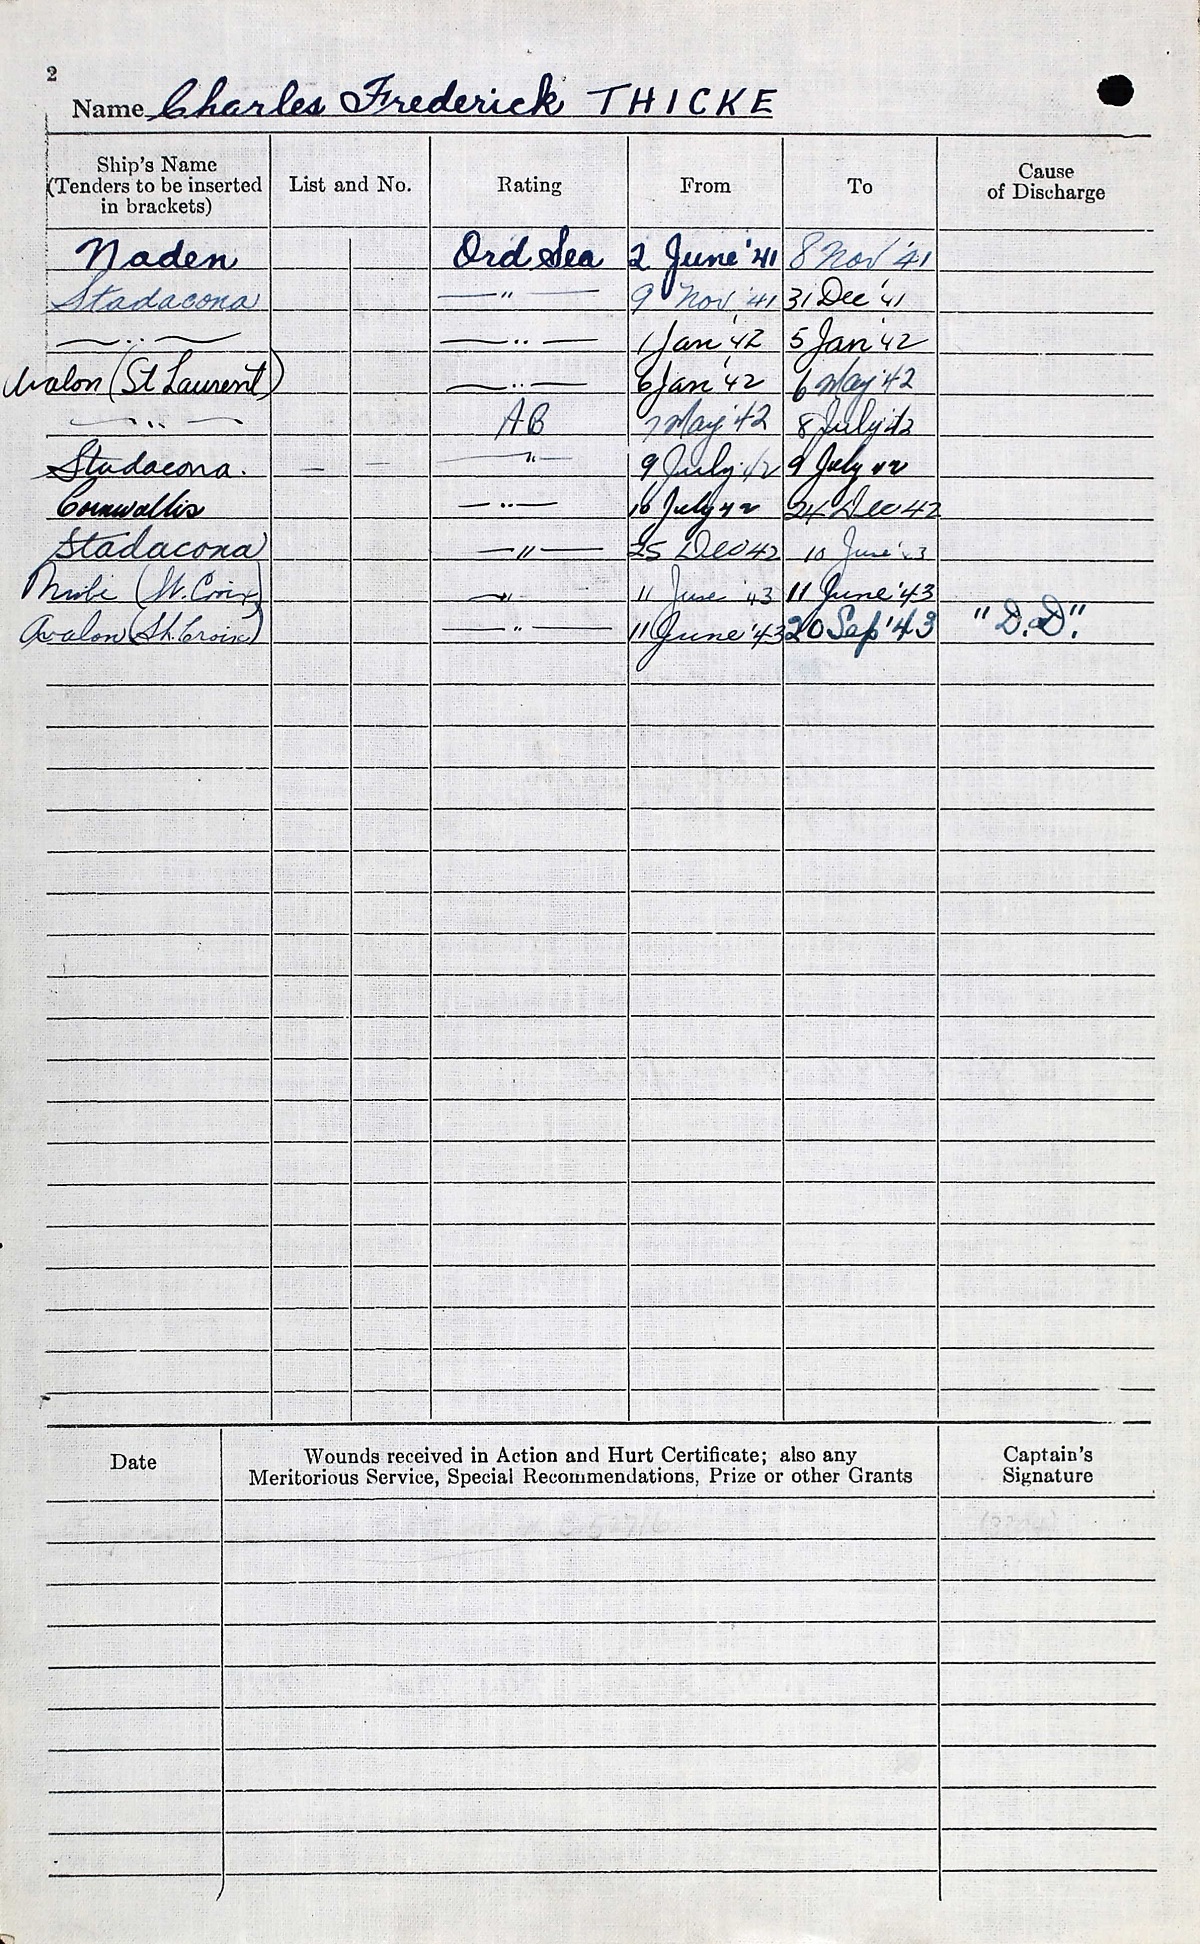 2
Name Charles Frederick THICKE
Ship's Name (Tenders to be inserted in brackets) List and No. Rating From To Cause of Discharge
Naden Ord Sea 2 June '41 8 Nov '41
Stadacona —"— 9 Nov '41 31 Dec '41
—"— —"— 1 Jan '42 5 Jan '42
Avalon (St Laurent) —"— 6 Jan '42 6 May '42
—"— AB 7 May '42 8 July '42
Stadacona. — — —"— 9 July '42 9 July 42
Cornwallis —"— 10 July 42 24 Dec 42
Stadacona —"— 25 Dec 42 10 June '43
(St. Croix) —"— 11 June '43 11 June '43
Avalon (St. Croix) —"— 11 June '43 20 Sep '43 "D.D".
Date Wounds received in Action and Hurt Certificate; also any Meritorious Service, Special Recommendations, Prize or other Grants Captain's Signature